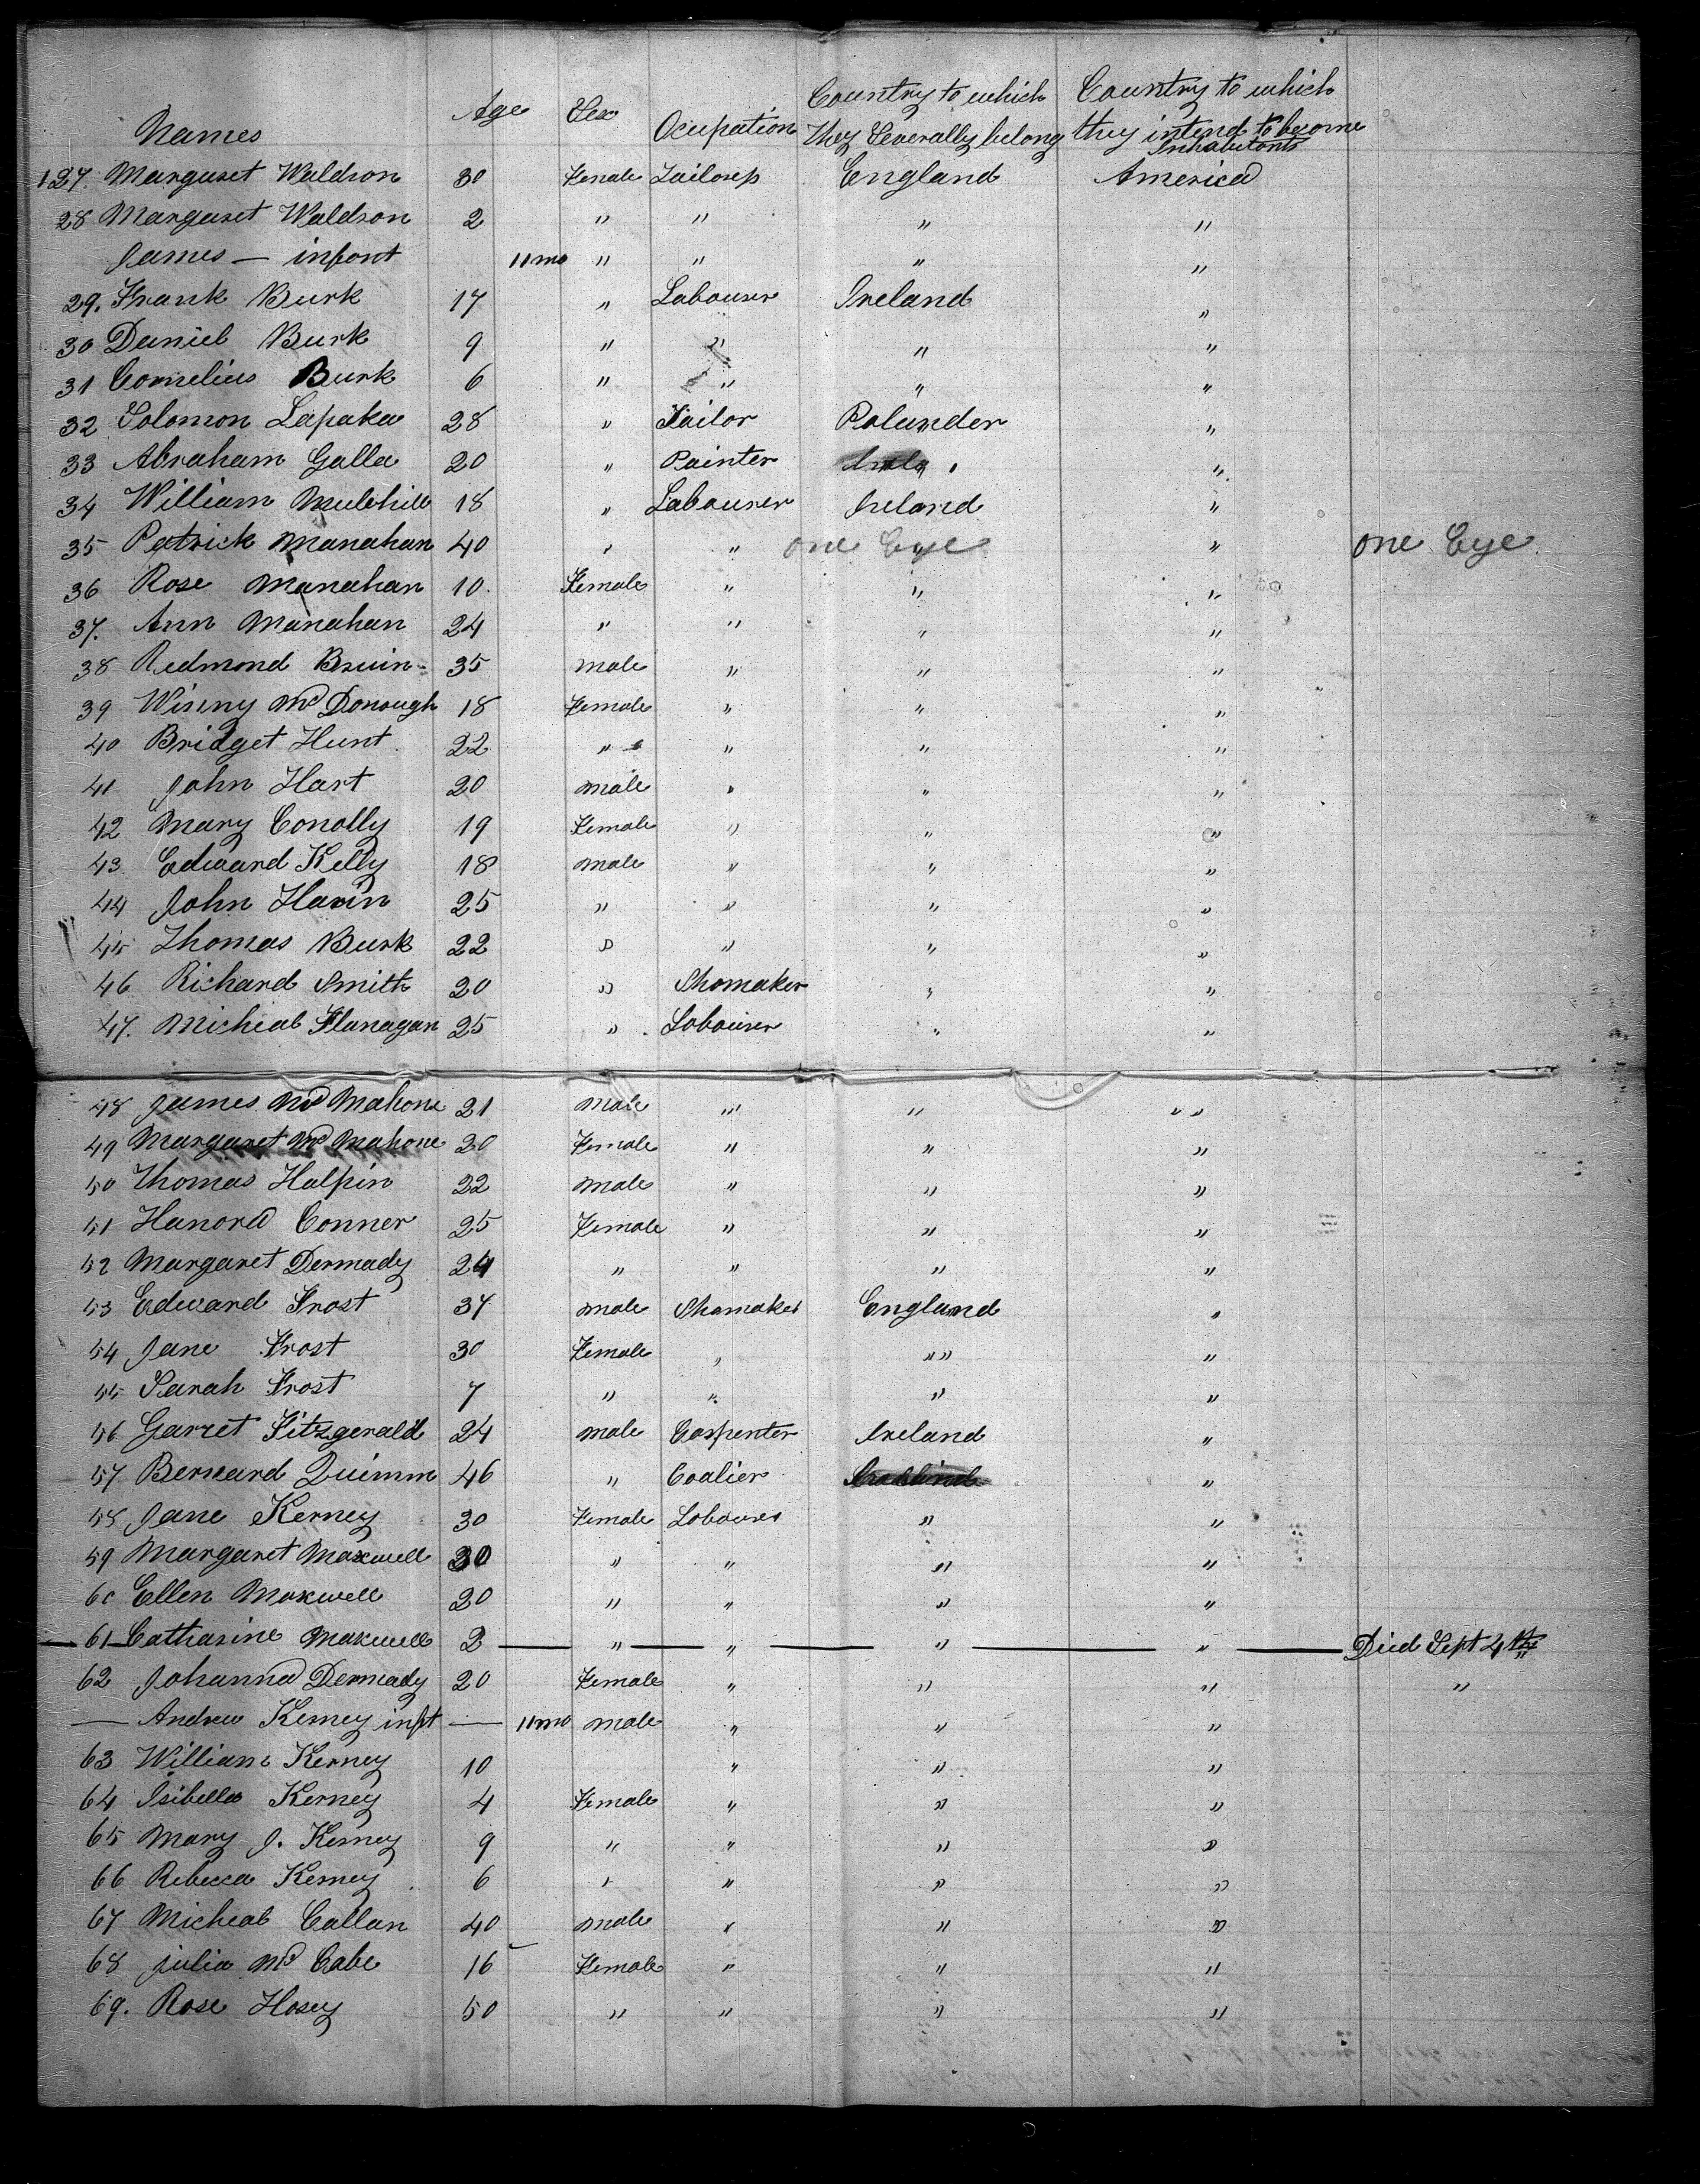 Names Age Sex Ocupation Country to which they Severally belong Country to which they intend to become Inhabitants
127. Margaret Waldron 30 Female Tailoress England America
28 Margaret Waldron 2 " " " "
James — infant 11 mo " " " "
29. Frank Burk 17 " Labourer Ireland "
30 Daniel Burk 9 " " " "
31 Cornelius Burk 6 " " " "
32 Solomon Lapaka 28 " Tailor Polander "
33 Abraham Galla 20 " Painter " "
34 William Mulehill 18 " Labourer Ireland "
35 Patrick Manahan 40 " " one Eye " " one Eye
36 Rose Manahan 10 Female " " "
37. Ann Manahan 24 " " " "
38 Redmond Bruin 35 male " " "
39 Winny McDonough 18 Female " " "
40 Bridget Hunt 22 " " " "
41 John Hart 20 male " " "
42 Mary Conolly 19 Female " " "
43 Edward Kelly 18 male " " "
44 John Havin 25 " " " "
45 Thomas Burk 22 " " " "
46 Richard Smith 20 " Shomaker " "
47. Micheal Flanagan 25 " Labourer " "
48 James McMahone 21 male " " "
49 Margaret McMahone 20 Female " " "
50 Thomas Halpin 22 male " " "
51 Hanora Conner 25 Female " " "
52 Margaret Dermady 24 " " " "
53 Edward Frost 37 male Shomaker England "
54 Jane Frost 30 Female " " "
55 Sarah Frost 7 " " " "
56 Garret Fitzgerald 24 male Carpenter Ireland "
57 Bernard Quimm 46 " Coalier "
58 Jane Kerney 30 Female Labourer " "
59 Margaret Maxwell 30 " " " "
60 Ellen Maxwell 20 " " " "
61 Catharine Maxwell 2 " " " " Died Sept 4th
62 Johanna Dermady 20 Female " " " "
— Andrew Kerney inft — 11 mo male " " "
63 William Kerney 10 " " "
64 Isibella Kerney 4 Female " " "
65 Mary J. Kerney 9 " " " "
66 Rebecca Kerney 6 " " " "
67 Micheal Callan 40 male " " "
68 Julia McCabe 16 Female " " "
69. Rose Hosey 50 " " " "